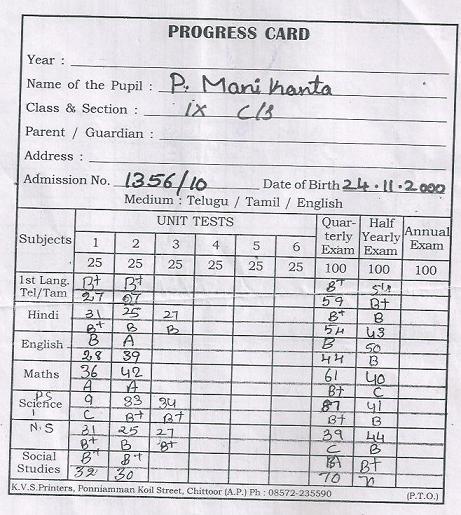 PROGRESS CARD
Year :
Name of the Pupil : P. Mani Kanta
Class & Section : IX C/B
Parent / Guardian :
Address :
Admission No. 1356/10 Date of Birth 24.11.2000
Medium : Telugu / Tamil / English
Subjects UNIT TESTS Quar-terly Exam Half Yearly Exam Annual Exam
1 2 3 4 5 6
25 25 25 25 25 25 100 100 100
1st Lang. B+ B+ B+ 54
Tel/Tam 27 27 59 B+
Hindi 31 25 27 B+ B
B+ B B 54 43
English B A B 50
28 39 44 B
Maths 36 42 61 40
A A B+ C
P.S Science 9 33 34 87 41
C B+ B+ B+ B
N.S 31 25 27 39 44
B+ B B+ C B
Social B+ B+ B+
Studies 32 30 70
K.V.S.Printers, Ponniamman Koil Street, Chittoor (A.P.) Ph : 08572-235590 (P.T.O.)